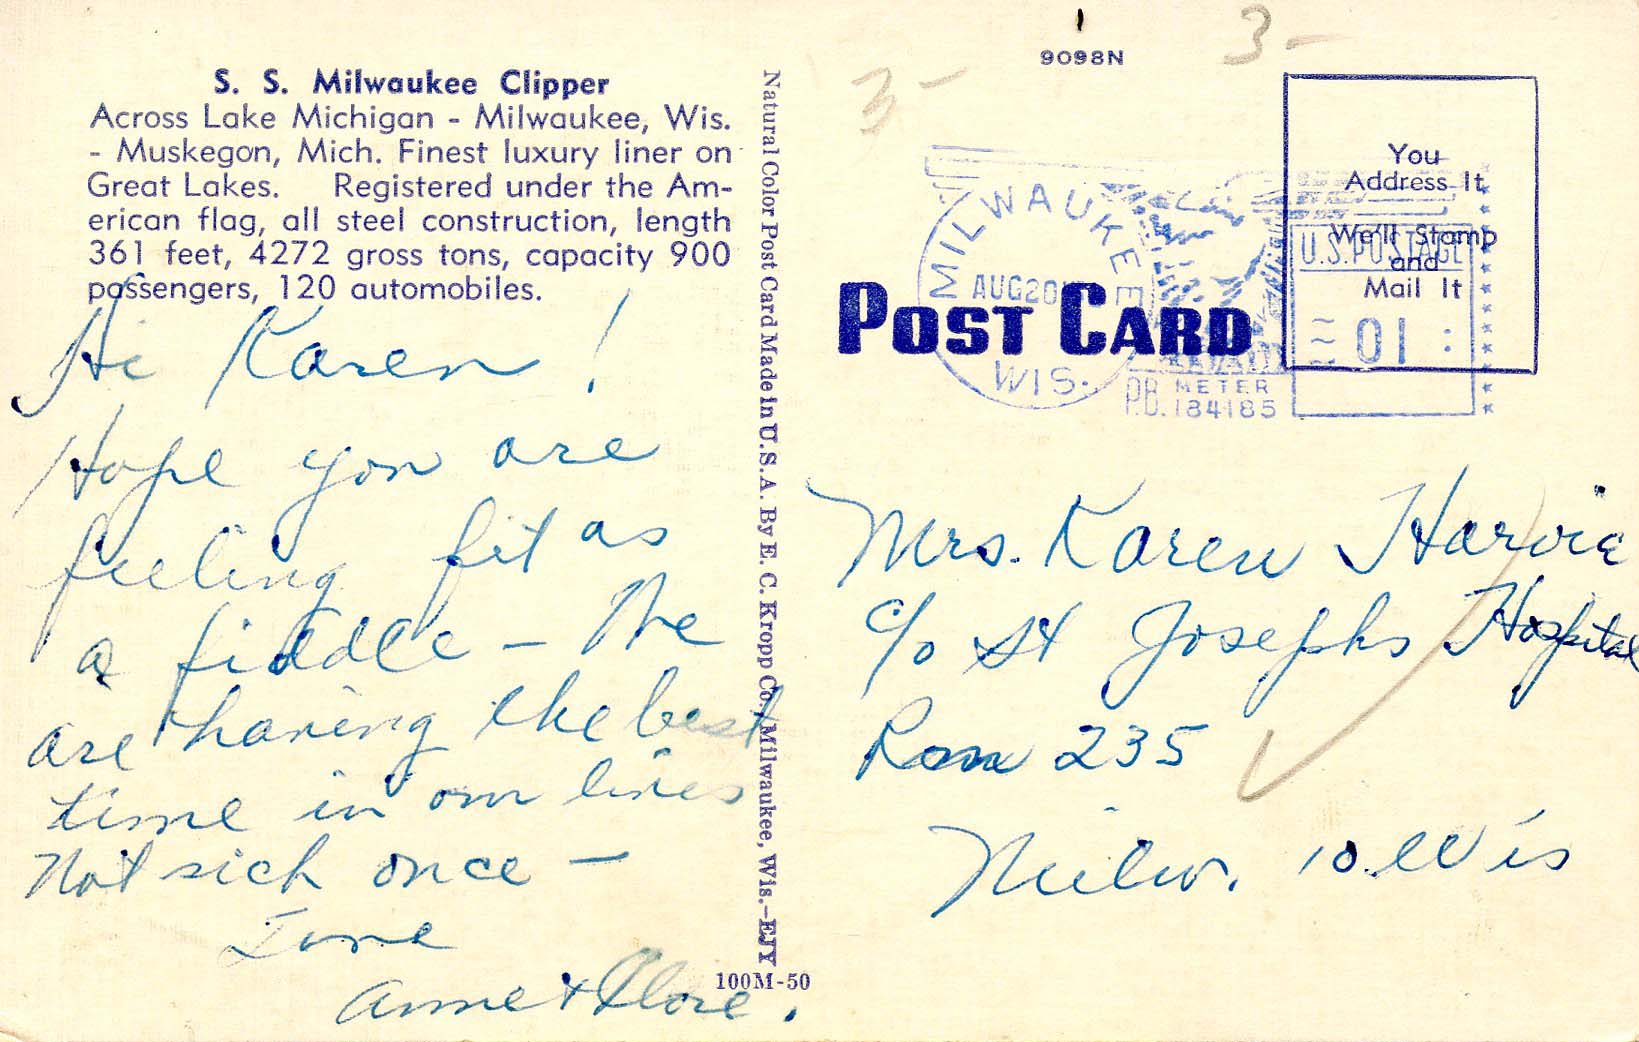 S. S. Milwaukee Clipper
Across Lake Michigan - Milwaukee, Wis.
- Muskegon, Mich. Finest luxury liner on
Great Lakes. Registered under the Am-
erican flag, all steel construction, length
361 feet, 4272 gross tons, capacity 900
passengers, 120 automobiles.
Hi Karen!
Hope you are
feeling fit as
a fiddle - We
are having the best
time in our lives
Not sick once -
Anne +
Natural Color Post Card Made in U.S.A. By E. C. Kropp Co., Milwaukee, Wis.-EJY
100M-50
9098N
3-
3-
POST CARD
MILWAUKEE
AUG 20
WIS.
P.B. METER
184185
U.S. POSTAGE
01
You
Address It
We'll Stamp
and
Mail It
Mrs. Karen Harvie
c/o St Josephs Hospital
Room 235
Milw. 10. Wis